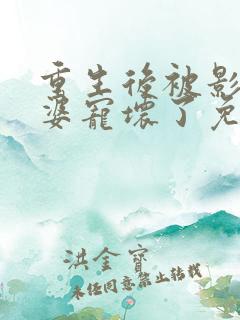 重生後被影
婆寵壞了免
洪金寶
未經同意禁止轉載